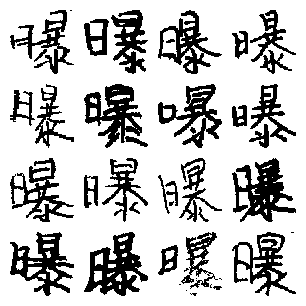 曝曝曝曝
曝曝曝曝
曝曝曝曝
曝曝曝曝